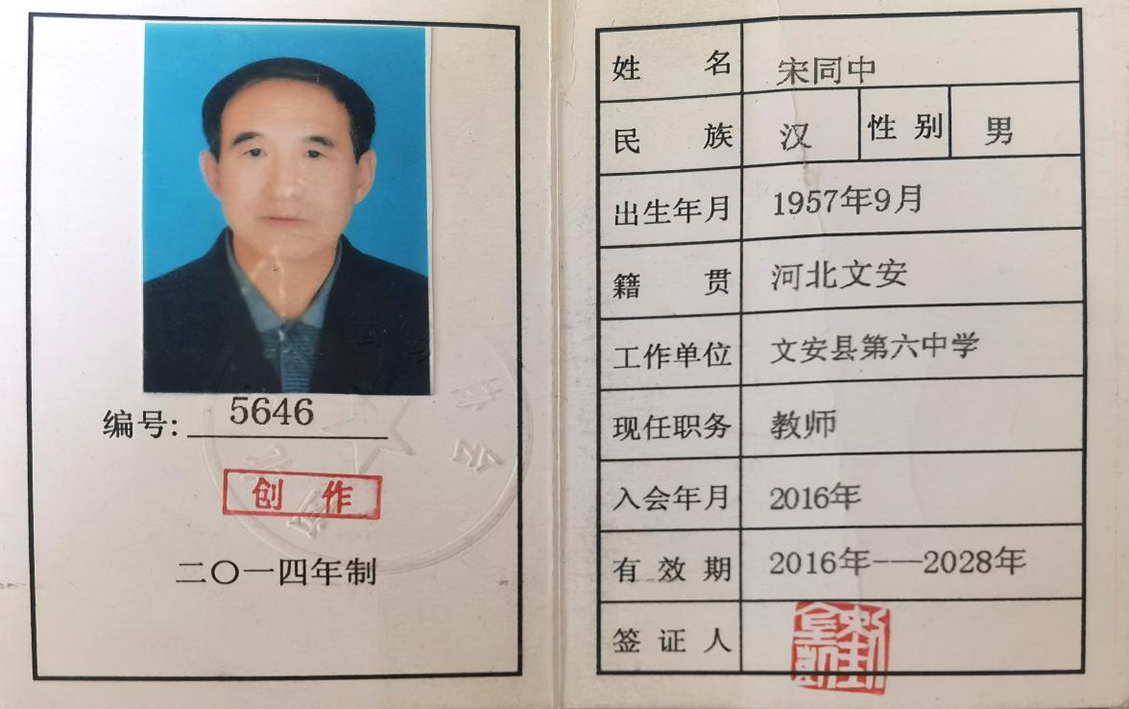 编号: 5646
创 作
二〇一四年制
姓 名 宋同中
民 族 汉 性 别 男
出生年月 1957年9月
籍 贯 河北文安
工作单位 文安县第六中学
现任职务 教师
入会年月 2016年
有 效 期 2016年---2028年
签 证 人